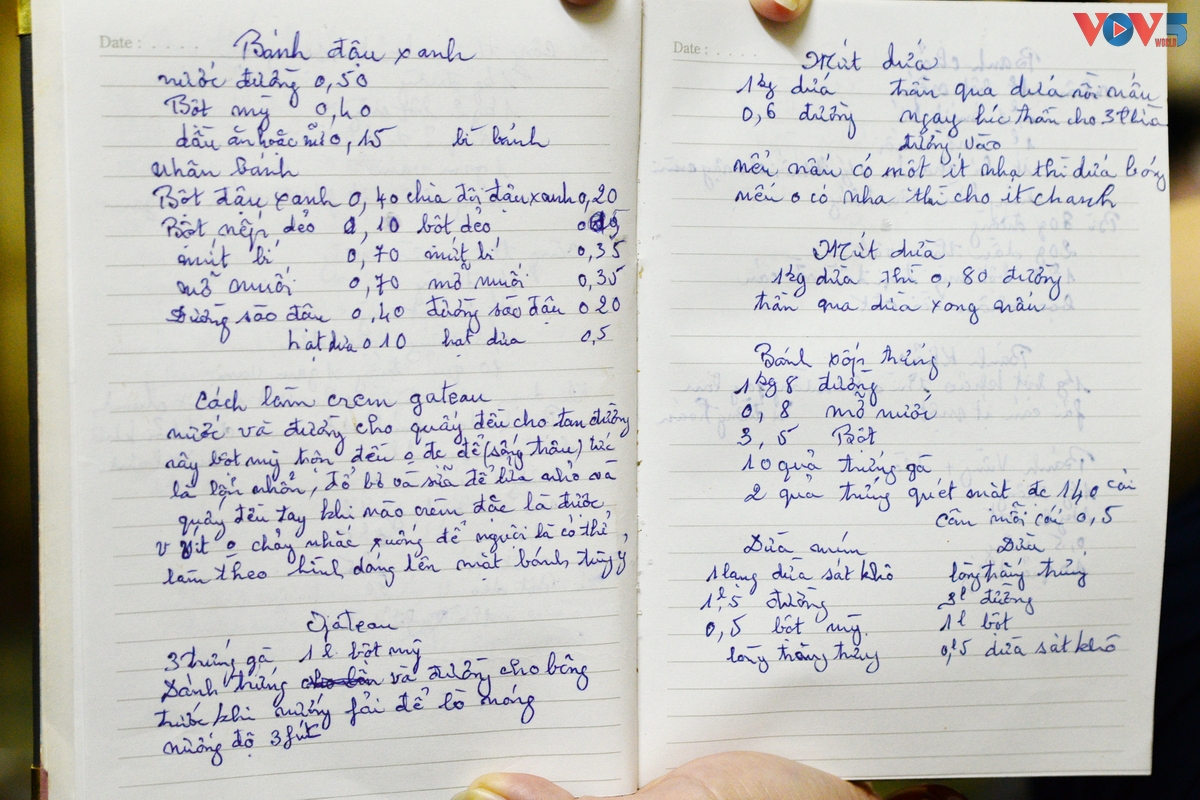 VOV5
WORLD
Date : . . . .
Bánh đậu xanh
nước đường 0,50
Bột mỹ 0,40
dầu ăn hoặc mỡ 0,15 bì bánh
nhân bánh
Bột đậu xanh 0,40 chia đôi đậu xanh 0,20
Bột nếp dẻo 0,10 bột dẻo
mứt bí 0,70 mứt bí 0,35
mỡ muối 0,70 mỡ muối 0,35
Đường sào đậu 0,40 đường sào đậu 020
hạt dưa 010 hạt dưa 0,5
Cách làm crem gateau
nước và đường cho quấy đều cho tan đường
này bột mỹ trộn đều o đc để (sống trâu) tức
là lổn nhổn, đổ bơ và sữa để lửa nhỏ và
quấy đều tay khi nào crèm đặc là được
vít o chảy nhấc xuống để nguội là có thể
làm theo hình dáng lên mặt bánh tùy ý
Gateau
3 trứng gà 1l bột mỹ
Đánh trứng và đường cho bông
trước khi nướng fải để lò nóng
nướng độ 3 fút
Date : . . . .
Mứt dứa
1kg dứa trần qua dứa rồi nấu
0,6 đường ngay lúc trần cho 3 thìa
đường vào
nếu nấu có một ít nha thì dứa bóng
nếu o có nha thì cho ít chanh
Mứt dừa
1kg dừa thì 0,80 đường
trần qua dừa xong nấu
Bánh xốp trứng
1kg8 đường
0,8 mỡ nước
3,5 Bột
10 quả trứng gà
2 quả trứng quét mặt đc 140 cái
cân mỗi cái 0,5
Dừa mín Dừa
1 lạng dừa sát khô lòng trắng trứng
1l,5 đường 3l đường
0,5 bột mỹ 1l bột
lòng trắng trứng 0,l5 dừa sát khô